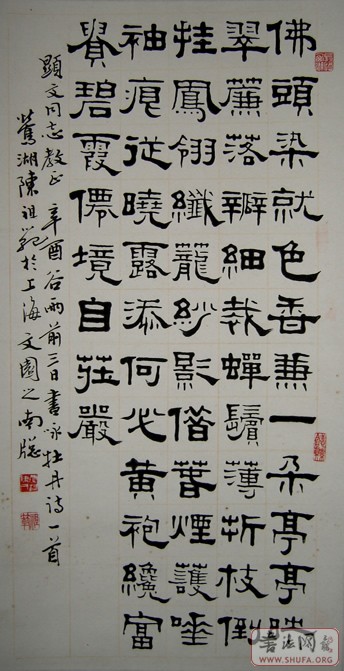 佛頭染就色香兼一朵亭亭
翠簾落瓣細裁蟬鬢薄折枝倒
挂鳳翎纖蘢紗影借煙護唾
袖痕從曉露添何必黃袍纔富
貴碧霞僊境自莊嚴
顯文同志教正 辛酉谷雨前三日書咏牡丹詩一首
鶯湖陳祖範於上海文園之南牕
书法网
WWW.SHUFA.ORG